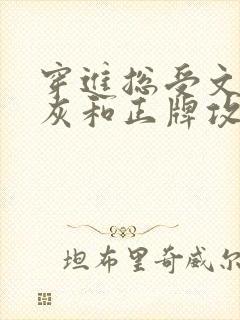 穿进总受文
灰和正牌攻
坦布里奇威尔